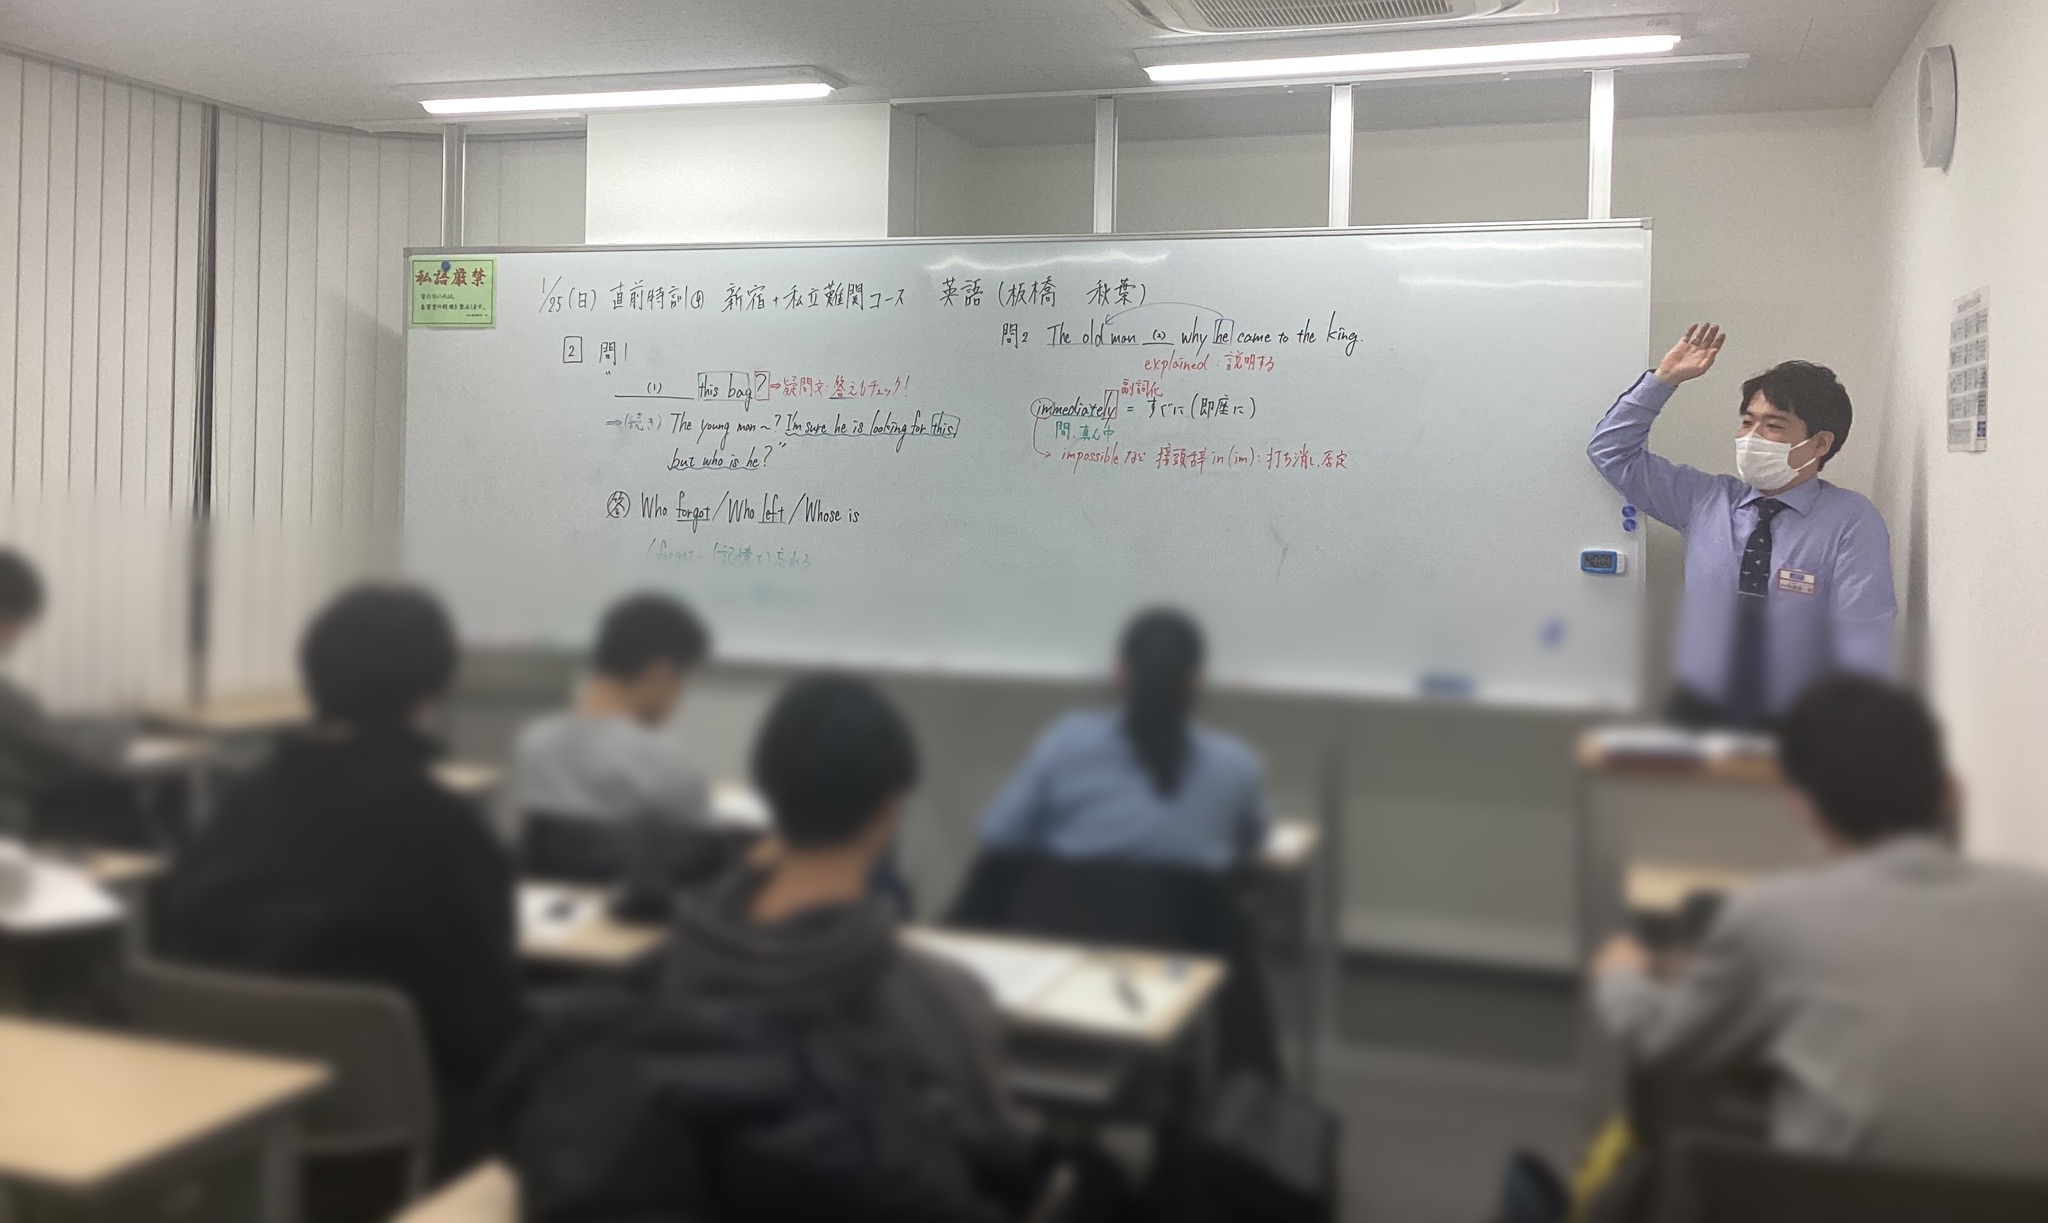 私語厳禁
1/25(日) 直前特訓④ 新宿+私立難関コース 英語(板橋 秋葉)
2 問1
" (1) this bag ? ⇒疑問文:答えもチェック!
⇒(続き) The young man ~? I'm sure he is looking for this,
but who is he?"
答 Who forgot / Who left / Whose is
forget (記憶を)忘れる
問2 The old man (2) why he came to the king.
explained:説明する
副詞化
immediately = すぐに(即座に)
間、真ん中
impossible など 接頭辞 in(im):打ち消し、否定